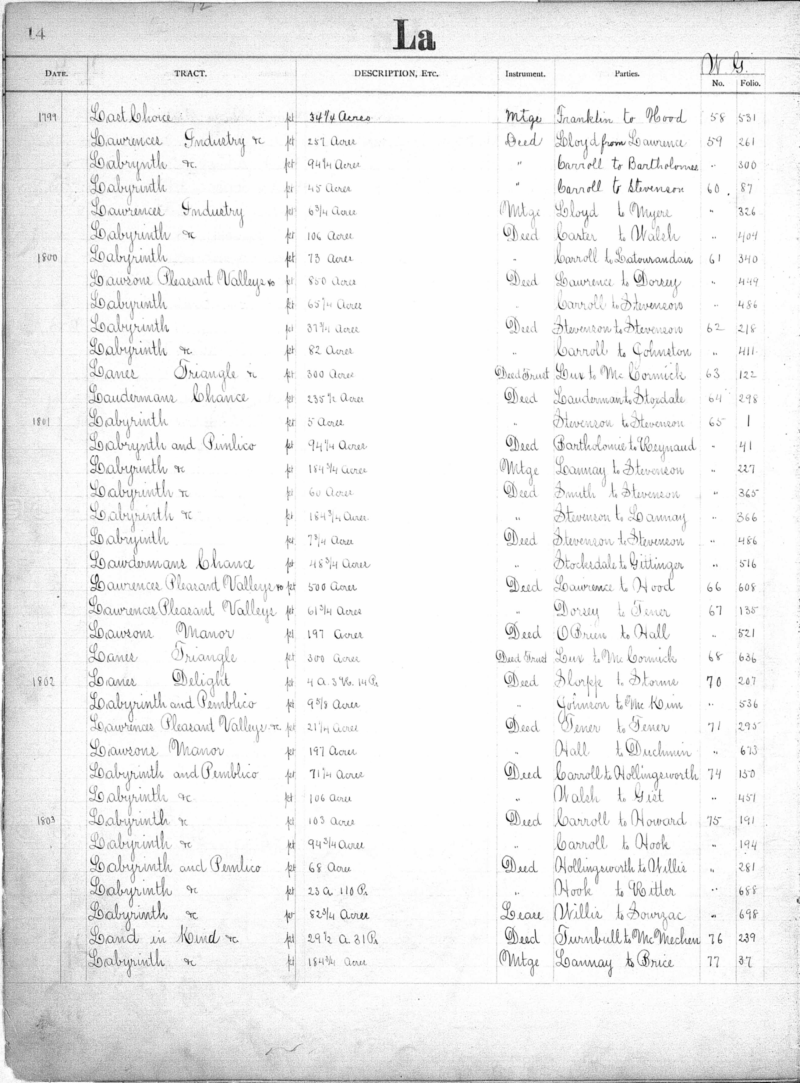 14 La
W G.
DATE. TRACT. DESCRIPTION, ETC. Instrument. Parties. No. Folio.
1799 Last Choice pt 34 1/4 Acres Mtge Franklin to Hood 58 531
Lawrences Industry &c pt 287 Acres Deed Lloyd from Lawrence 59 261
Labrynth &c pt 94 1/4 Acres " Carroll to Bartholomee " 300
Labyrinth pt 45 Acres " Carroll to Stevenson 60 87
Lawrences Industry pt 6 3/4 Acres Mtge Lloyd to Myers " 326
Labyrinth &c pt 106 Acres Deed Carter to Walsh " 404
1800 Labyrinth pt 73 Acres " Carroll to Latourandais 61 340
Lawsons Pleasant Valleys &c pt 850 Acres Deed Lawrence to Dorsey " 449
Labyrinth pt 65 1/4 Acres " Carroll to Stevenson " 486
Labyrinth pt 37 3/4 Acres Deed Stevenson to Stevenson 62 218
Labyrinth &c pt 82 Acres " Carroll to Johnston " 411
Lanes Triangle &c pt 300 Acres Deed Trust Lux to Mc Cormick 63 122
Laudermans Chance pt 235 1/2 Acres Deed Lauderman to Stoxdale 64 298
1801 Labyrinth pt 5 Acres " Stevenson to Stevenson 65 1
Labrynth and Pimlico pt 94 1/4 Acres Deed Bartholomie to Reynaud " 41
Labyrinth &c pt 184 3/4 Acres Mtge Lannay to Stevenson " 227
Labyrinth &c pt 60 Acres Deed Smith to Stevenson " 365
Labyrinth &c pt 184 3/4 Acres " Stevenson to Lannay " 366
Labryinth pt 7 3/4 Acres Deed Stevenson to Stevenson " 486
Lawdermans Chance pt 48 3/4 Acres " Stocksdale to Gittinger " 516
Lawrences Pleasant Valleys &c pt 500 Acres Deed Lawrence to Hood 66 608
Lawrences Pleasant Valleys pt 61 3/4 Acres " Dorsey to Fener 67 135
Lawsons Manor pt 197 Acres Deed O'Brien to Hall " 521
Lanes Triangle pt 300 Acres Deed Trust Lux to Mc Cormick 68 636
1802 Lanes Delight pt 4 A. 3 R. 14 Ps Deed Slorpp to Storms 70 207
Labyrinth and Pemblico pt 9 3/8 Acres " Johnson to Mc Kim " 536
Lawrences Pleasant Valleys &c pt 21 1/4 Acres Deed Fener to Fener 71 295
Lawsons Manor pt 197 Acres " Hall to Duchmin " 673
Labyrinth and Pemblico pt 71 1/4 Acres Deed Carroll to Hollingsworth 74 150
Labyrinth &c pt 106 Acres " Walsh to Gist " 457
1803 Labyrinth &c pt 103 Acres Deed Carroll to Howard 75 191
Labyrinth &c pt 94 3/4 Acres " Carroll to Hook " 194
Labyrinth and Pemlico pt 68 Acres Deed Hollingsworth to Willis " 281
Labyrinth &c pt 23 A. 110 Ps " Hook to Ritler " 688
Labyrinth &c pt 82 3/4 Acres Lease Willis to Sowrzac " 698
Land in Kind &c pt 29 1/2 A 31 Ps Deed Turnbull to Mc Mechen 76 239
Labyrinth &c pt 184 3/4 Acres Mtge Lannay to Brice 77 37